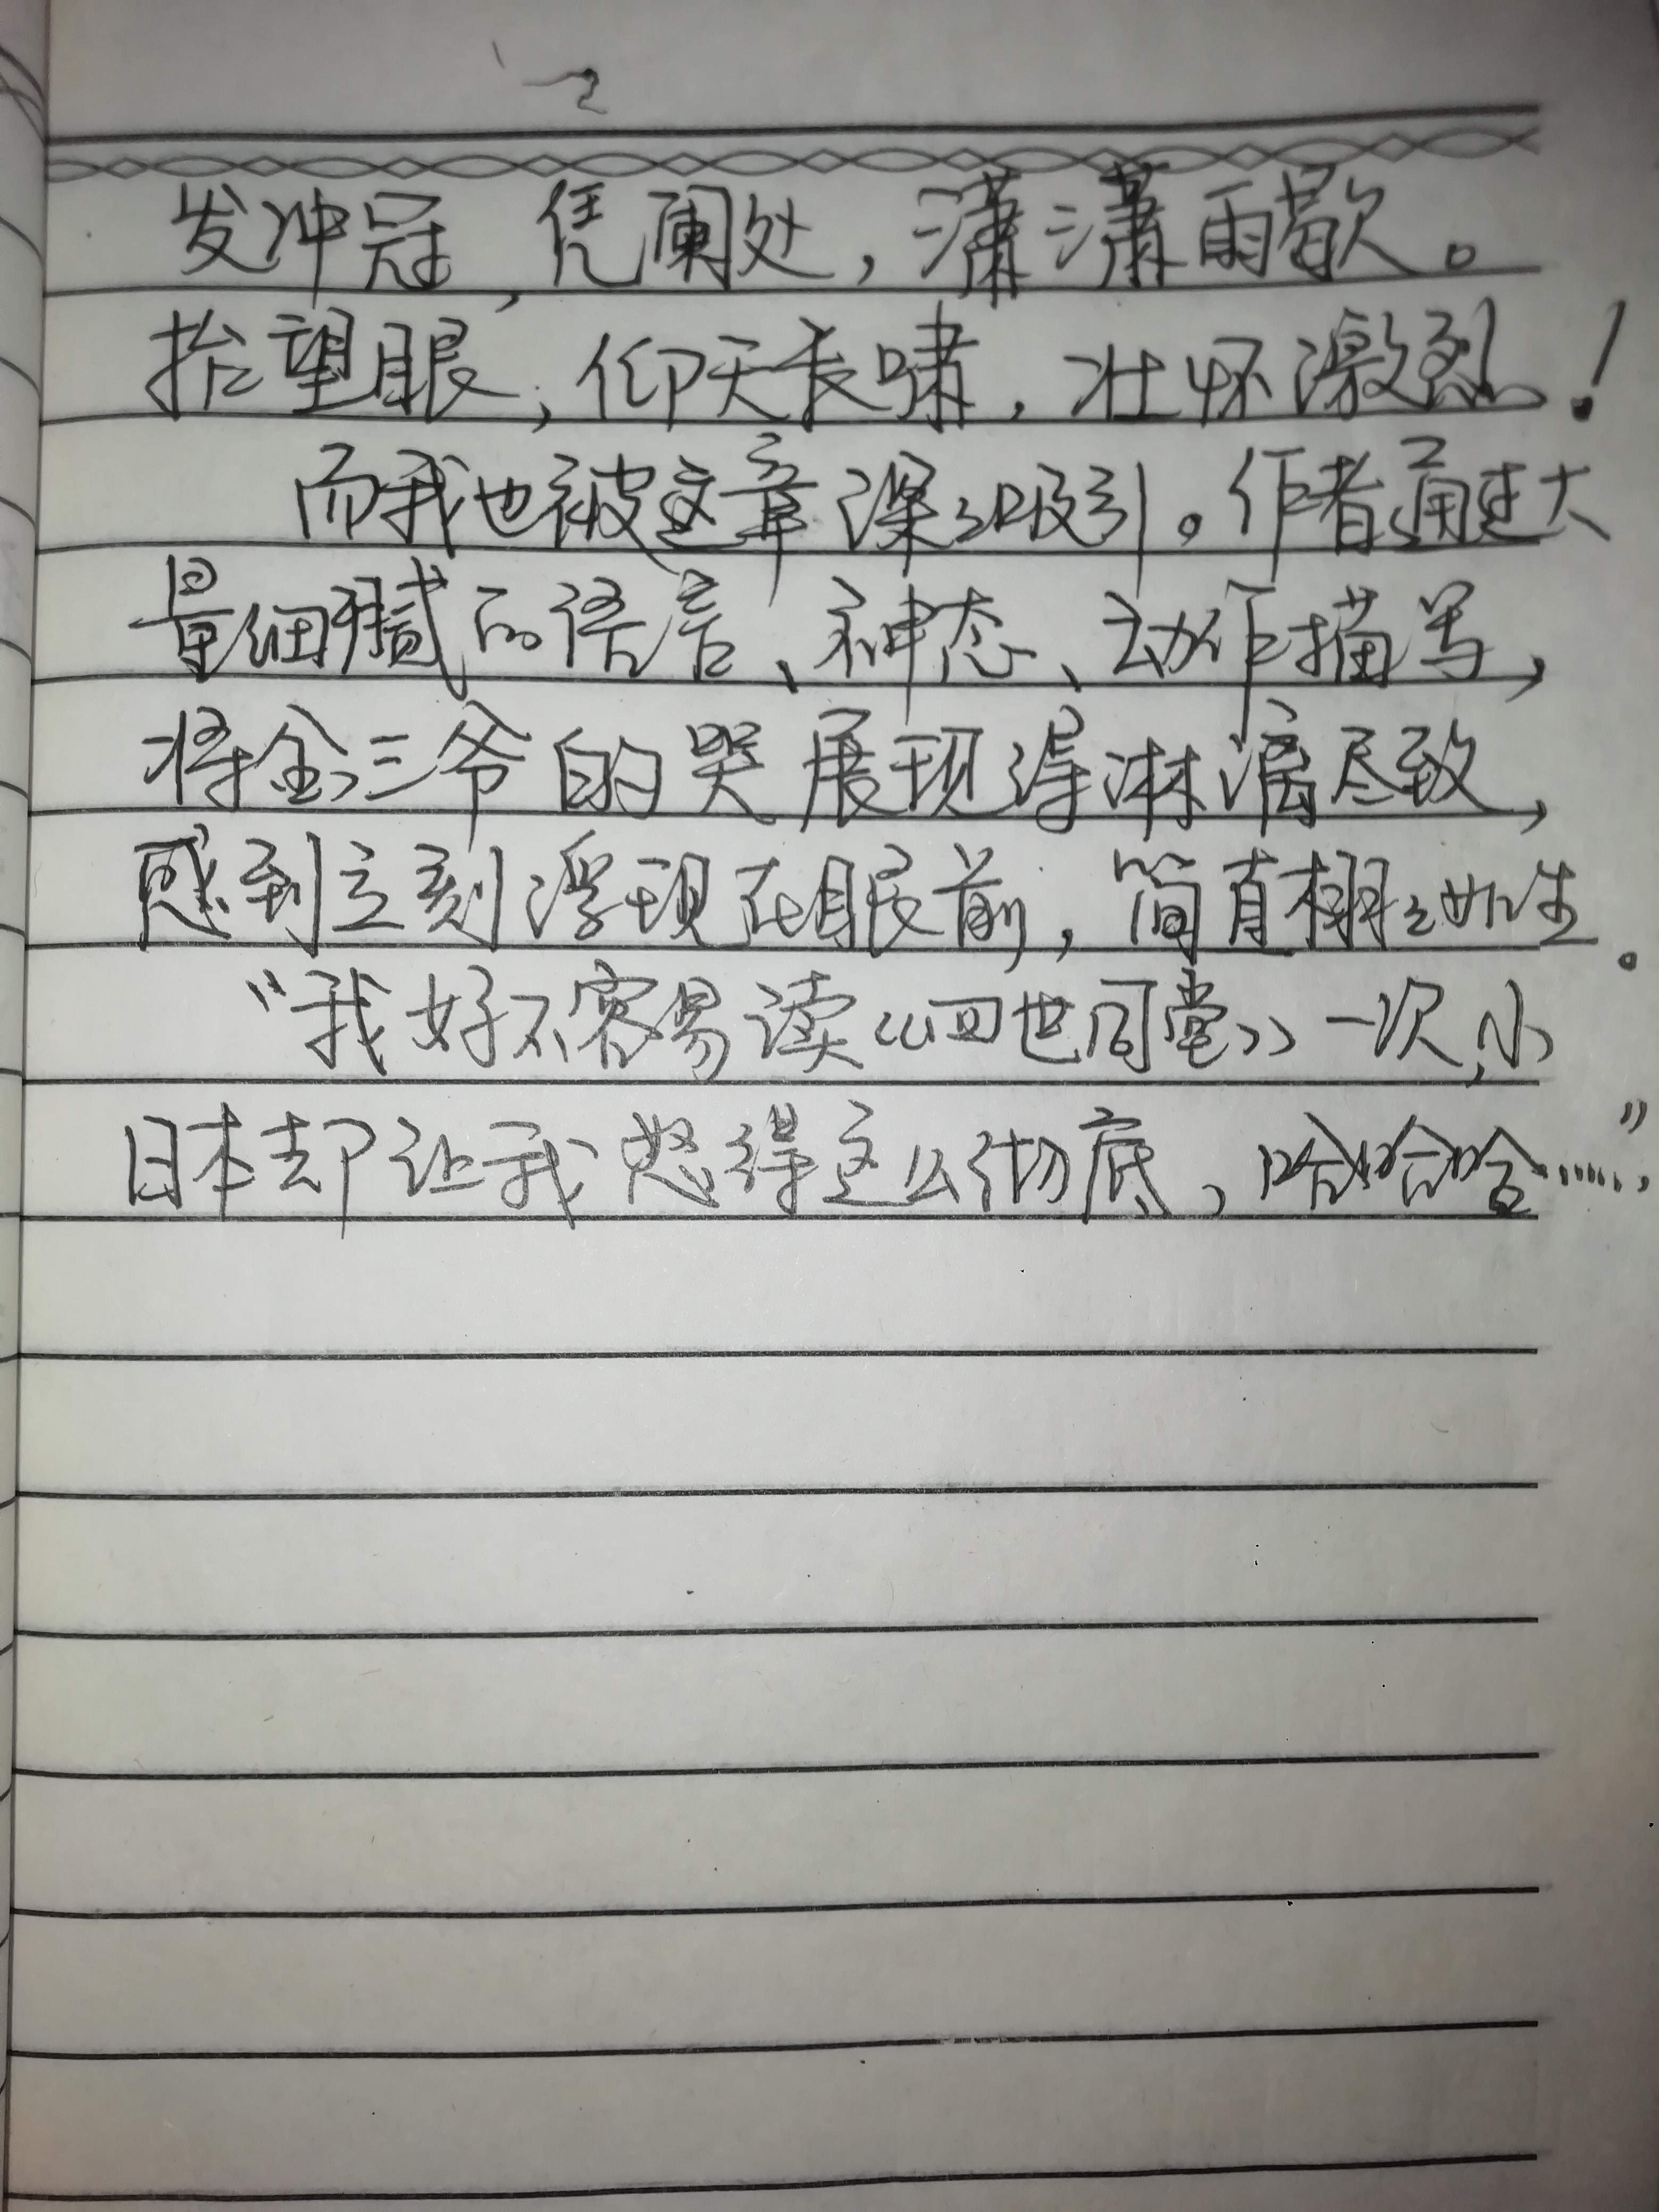 发冲冠，凭阑处，潇潇雨歇。
抬望眼，仰天长啸，壮怀激烈！
而我也被这章深深吸引。作者通过大
量细腻的语言、神态、动作描写，
将金三爷的哭展现得淋漓尽致，
感到立刻浮现在眼前，简直栩栩如生。
“我好不容易读《四世同堂》一次，小
日本却让我怒得这么彻底，哈哈哈……”